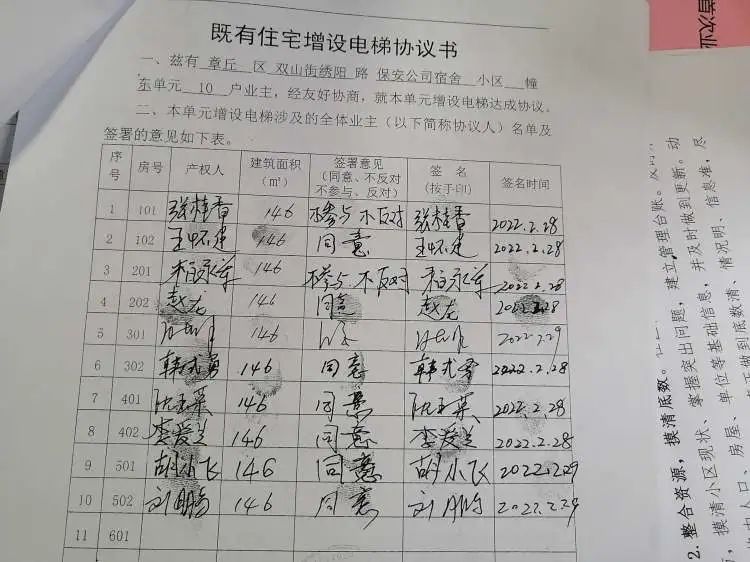 既有住宅增设电梯协议书
一、兹有 章丘 区 双山街绣阳 路 保安公司宿舍 小区 幢
东单元 10 户业主，经友好协商，就本单元增设电梯达成协议。
二、本单元增设电梯涉及的全体业主（以下简称协议人）名单及
签署的意见如下表。
序号 房号 产权人 建筑面积（㎡） 签署意见（同意、不反对不参与、反对） 签名（按手印） 签名时间
1 101 张桂香 146 不参与 不反对 张桂香 2022.2.28
2 102 王怀建 146 同意 王怀建 2022.2.28
3 201 146 不参与 不反对 2022.2.28
4 202 赵龙 146 同意 赵龙 2022.2.28
5 301 146 2022.2.29
6 302 韩式勇 146 同意 韩式勇 2022.2.28
7 401 沈玉英 146 同意 沈玉英 2022.2.28
8 402 李爱兰 146 同意 李爱兰 2022.2.28
9 501 胡小飞 146 同意 胡小飞 2022.2.29
10 502 刘鹏 146 同意 刘鹏 2022.2.29
11 601
首次业
建立管理台账。
2.整合资源，摸清底数。
摸清小区现状、掌握突出问题，
单位等基础信息，并及时做到更新。动
人口、房屋、
做到底数清、情况明、信息准，尽